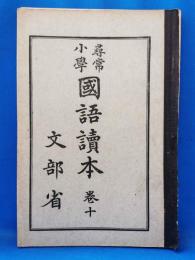 尋常小學國語讀本 卷十
文部省